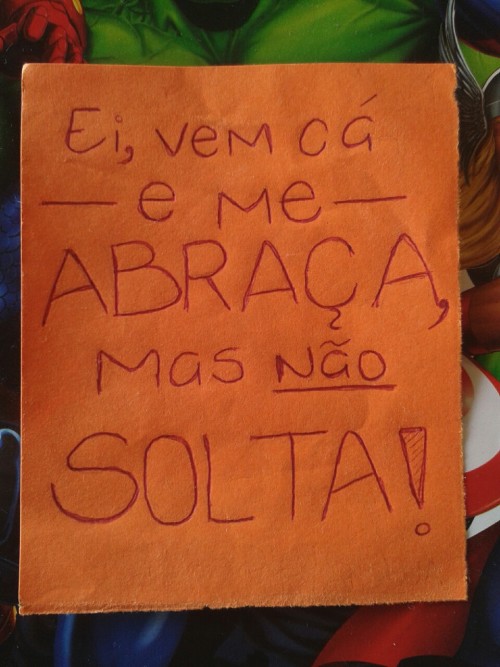 Ei, vem cá
— e me —
ABRAÇA,
mas não
SOLTA!